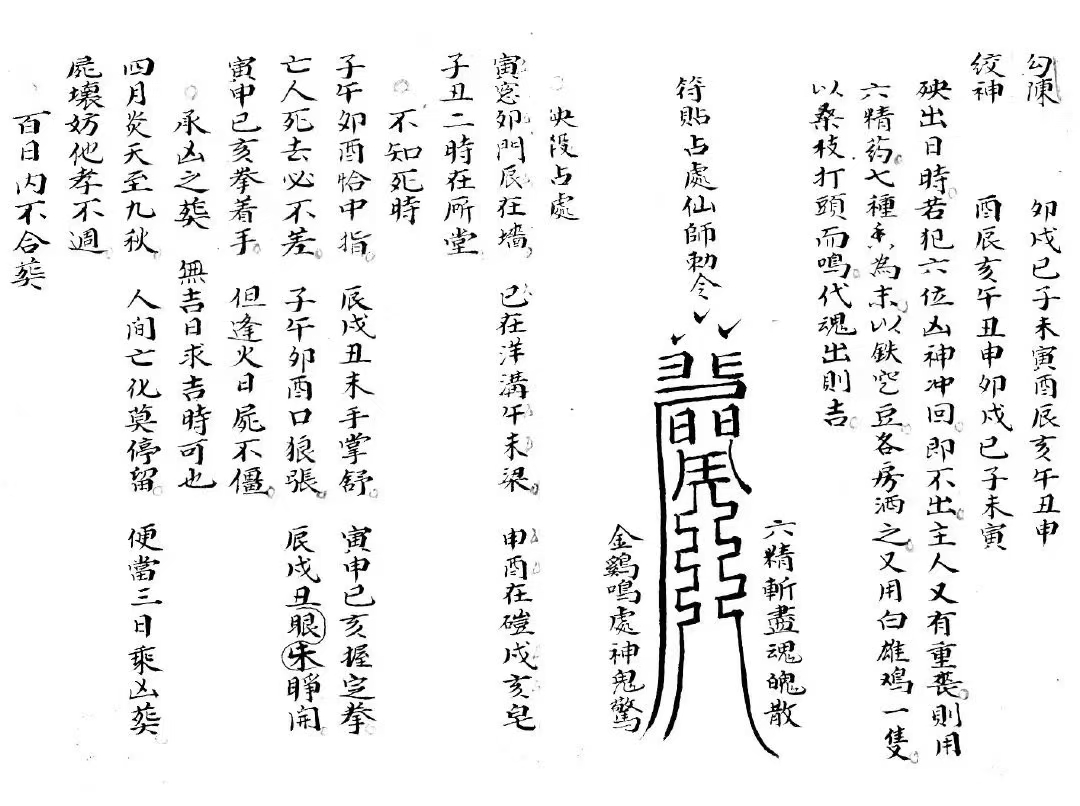 勾陳 卯戌巳子未寅酉辰亥午丑申
絞神 酉辰亥午丑申卯戌巳子未寅
殃出日時。若犯六位凶神冲回。即不出。主人又有重喪。則用
六精药七種。為末。以鉄豆。各房洒之。又用白雄鸡一隻。
以桑枝打頭而鳴。代魂出則吉。
符貼占處仙師勅令
六精斬盡魂魄散
金鷄鳴處神鬼驚
殃段占處
寅窓卯門辰在墻。 巳在洋溝午未梁。 申酉在磑戌亥皂
子丑二時在所堂
不知死時
子午卯酉恰中指。 辰戌丑未手掌舒。 寅申巳亥握定拳
亡人死去必不差。 子午卯酉口狼張。 辰戌丑眼未睜開
寅申巳亥拳着手。 但逢火日屍不僵。
承凶之葬 無吉日求吉時可也
四月炎天至九秋。 人间亡化莫停留。 便當三日乘凶葬。
屍壞妨他孝不週。
百日内不合葬